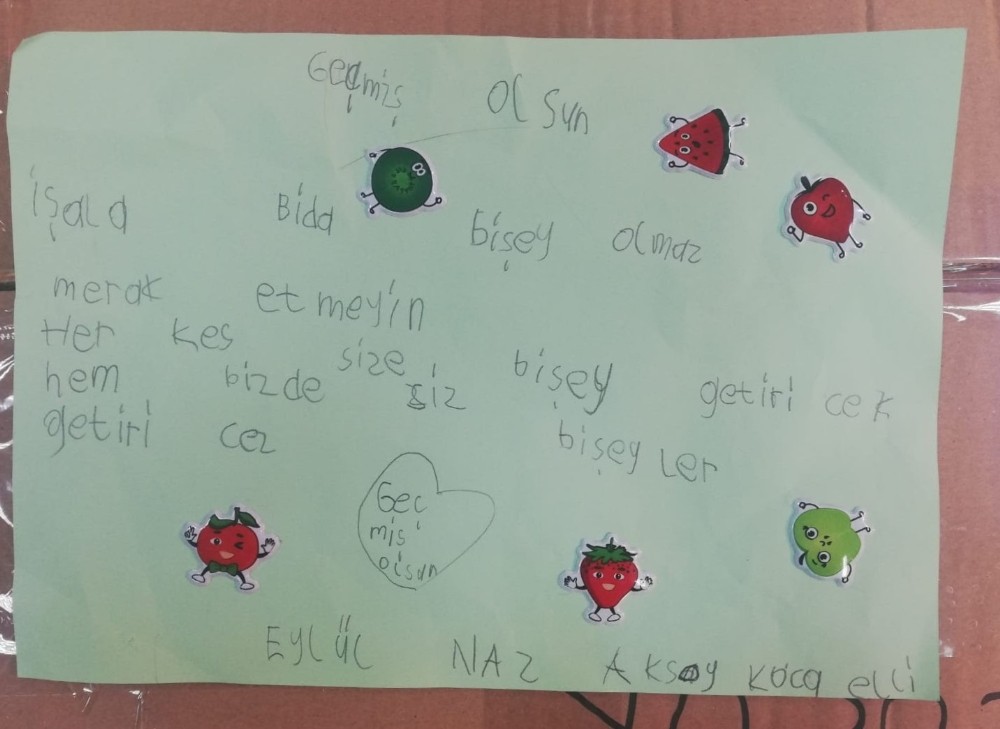 Geçmiş olsun
işala Bida bişey olmaz
merak etmeyin
Her kes size bişey getiri cek
hem bizde siz bişey ler
getiri cez
Geç
miş
olsun
EYLÜL NAZ Aksoy koca elli